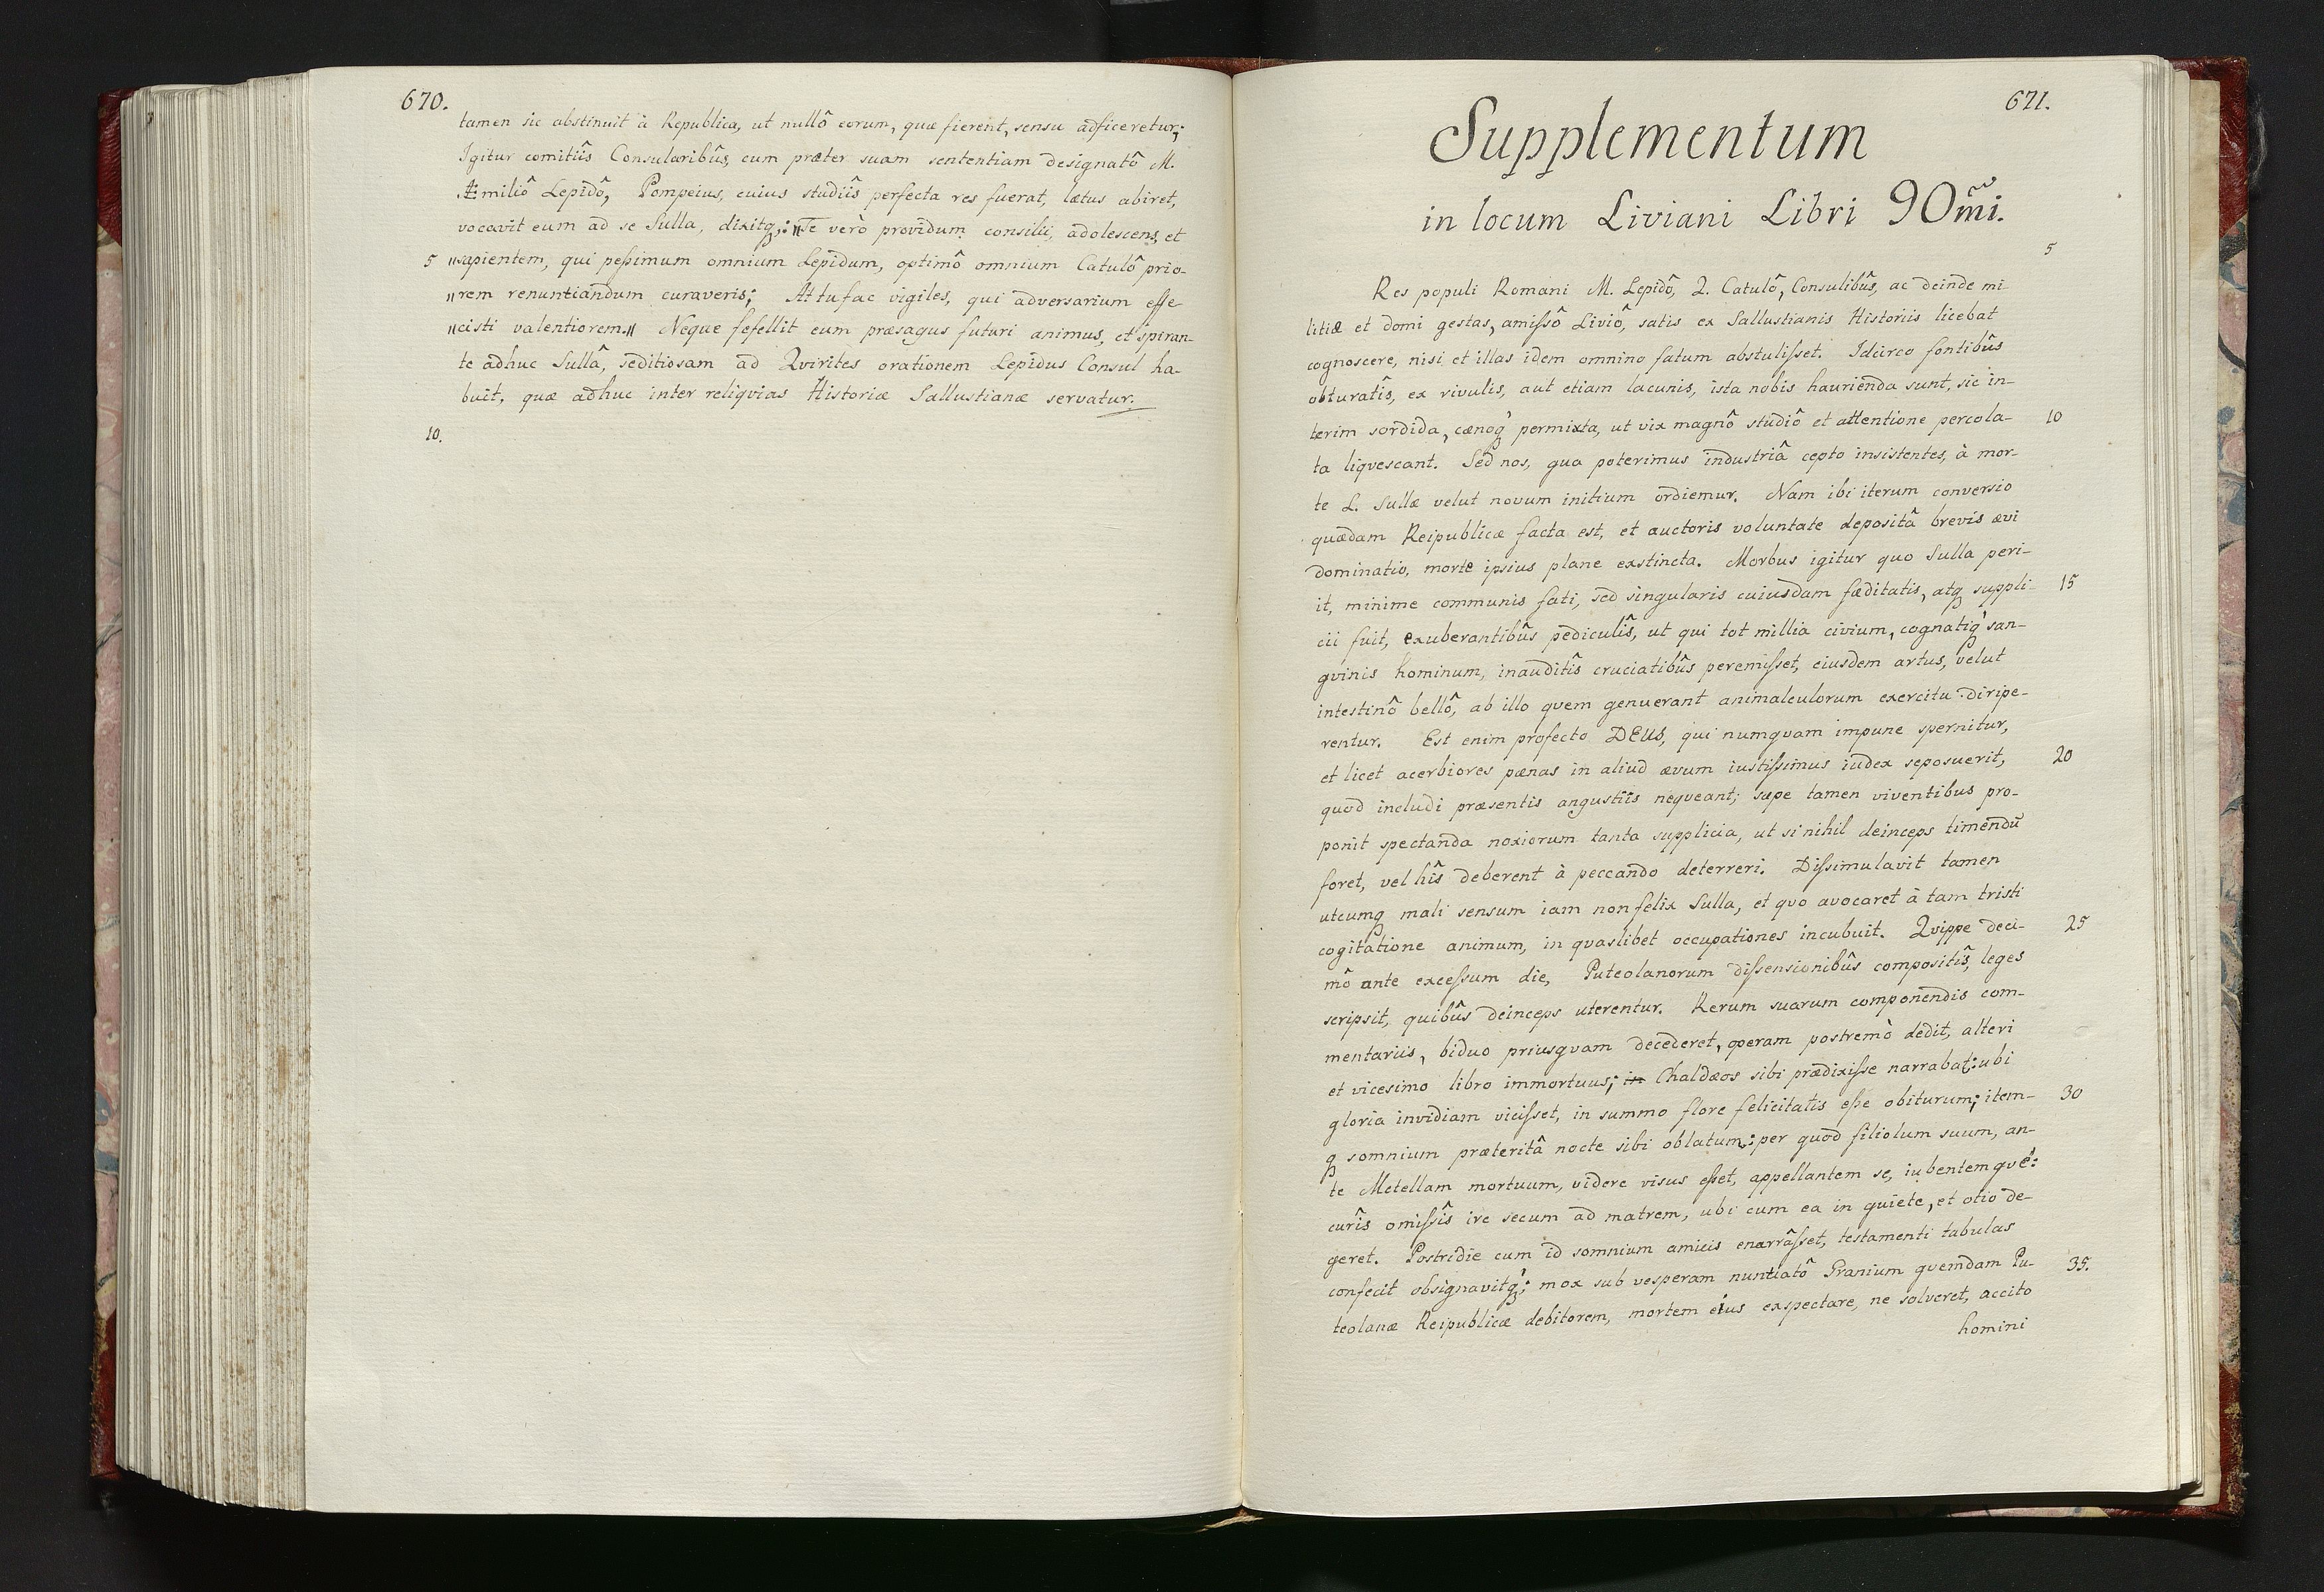 670.
tamen sic abstinuit à Republica, ut nullô eorum, quæ fierent, sensu adficeretur;
Igitur comitiîs Consularibûs, cum præter suam sententiam designatô M.
Æmiliô Lepidô, Pompeius, cuius studiîs perfecta res fuerat, lætus abiret,
vocavit eum ad se Sulla, dixitq;: "Te verò providum consilii, adolescens, et
5 "sapientem, qui peßimum omnium Lepidum, optimô omnium Catulô prio-
"rem renuntiandum curaveris; At tu fac vigiles, qui adversarium effe
"cisti valentiorem." Neque fefellit eum præsagus futuri animus, et spiran-
te adhuc Sullâ, seditiosam ad Qvirites orationem Lepidus Consul ha-
buit, quæ adhuc inter reliqvias Historiæ Sallustianæ servatur.
10.
671.
Supplementum
in locum Liviani Libri 90mi.
5
Res populi Romani M. Lepidô, Q. Catulô, Consulibûs, ac deinde mi
litiæ et domi gestas, amiſsô Liviô, satis ex Sallustianis Historiis licebat
cognoscere, nisi et illas idem omnino fatum abstuliſset. Idcirco fontibûs
obturatîs, ex rivulis, aut etiam lacunis, ista nobis haurienda sunt, sic in-
terim sordida, cænoq́ permixta, ut vix magnô studiô et attentione percola- 10
ta liqvescant. Sed nos, qua poterimus industriâ cepto insistentes, à mor-
te L. Sullæ velut novum initium ordiemur. Nam ibi iterum conversio
quædam Reipublicæ facta est, et auctoris voluntate depositâ brevis ævi
dominatio, morte ipsius plane exstincta. Morbus igitur quo Sulla peri-
it, minime communis fati, sed singularis cuiusdam fæditatis, atq suppli- 15
cii fuit, exuberantibûs pediculîs, ut qui tot millia civium, cognatiq́ san-
gvinis hominum, inauditîs cruciatibûs peremiſset, eiusdem artus, velut
intestinô bellô, ab illo qvem genuerant animalculorum exercitu diripe-
rentur. Est enim profecto DEUS, qui numqvam impune spernitur,
et licet acerbiores pænas in aliud ævum iustiſsimus iudex seposuerit, 20
quod includi præsentis angustiîs neqveant; sæpe tamen viventibus pro-
ponit spectanda noxiorum tanta supplicia, ut si nihil deinceps timendū
foret, vel hîs deberent à peccando deterreri. Diſsimulavit tamen
utcumq mali sensum iam non felix Sulla, et qvo avocaret à tam tristi
cogitatione animum, in qvaslibet occupationes incubuit. Qvippe deci- 25
mô ante exceſsum die, Puteolanorum diſsensionibûs compositîs, leges
scripsit, quibûs deinceps uterentur. Rerum suarum componendis com-
mentariis, biduo priusqvam decederet, operam postremò dedit, alteri
et vicesimo libro immortuus; in Chaldæos sibi prædixiſse narrabat: ubi
gloria invidiam viciſset, in summo flore felicitatis eße obiturum; item- 30
q somnium præteritâ nocte sibi oblatum: per quod filiolum suum, an-
te Metellam mortuum, videre visus eßet, appellantem se, iubentemqvé:
curîs omiſsîs ire secum ad matrem, ubi cum ea in quiete, et otio de-
geret. Postridie cum id somnium amicis enarrâſset, testamenti tabulas
confecit obsignavitq́; mox sub vesperam nuntiatô Granium qvemdam Pu- 35.
teolanæ Reipublicæ debitorem, mortem eius exspectare, ne solveret, accito
homini